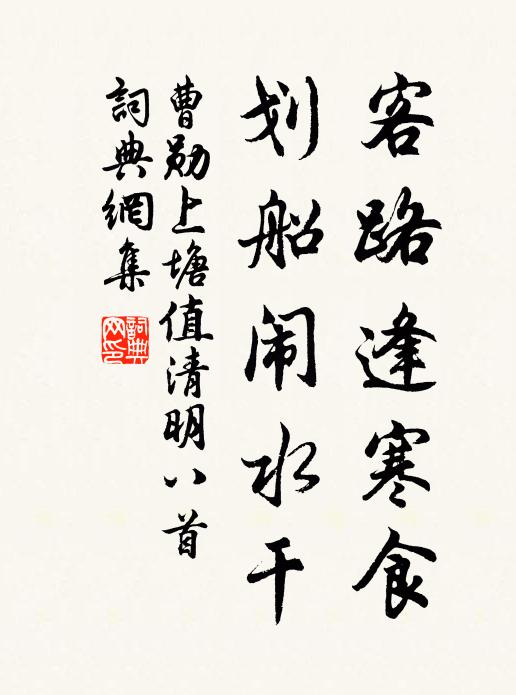 客路逢寒食
划船闹水干
曹勋上塘值清明八首
詞典網集
詞典网印